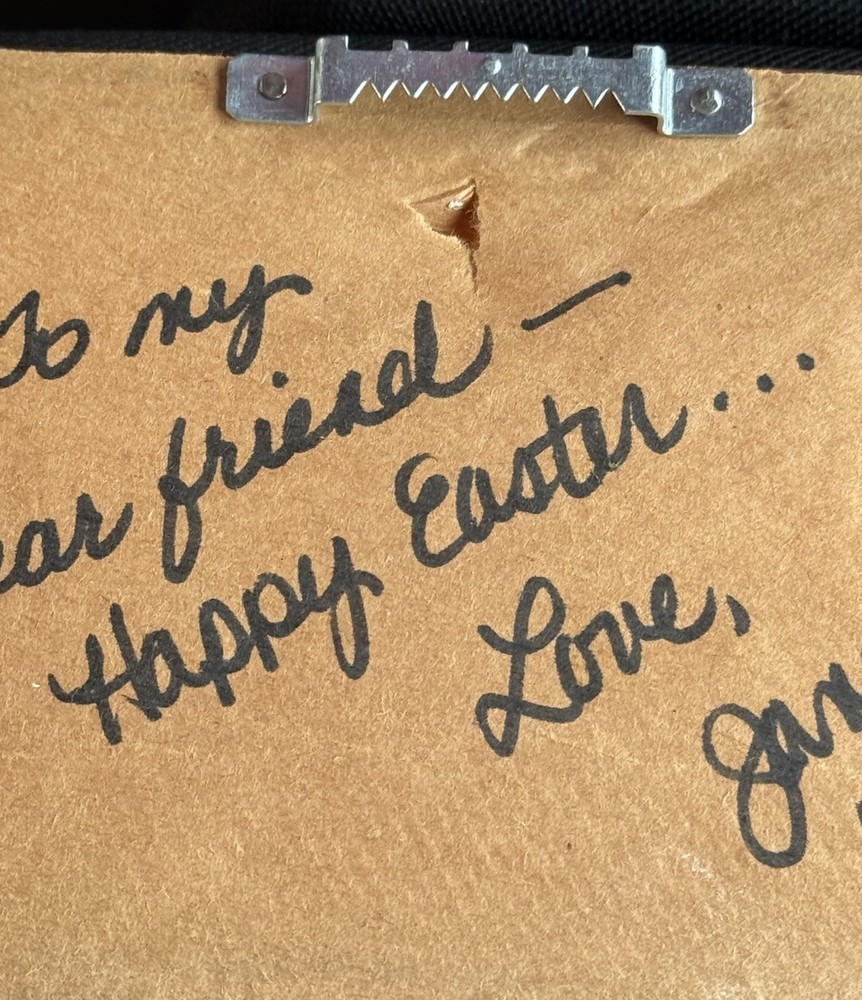 To my
ear friend —
Happy Easter...
Love,
Jan